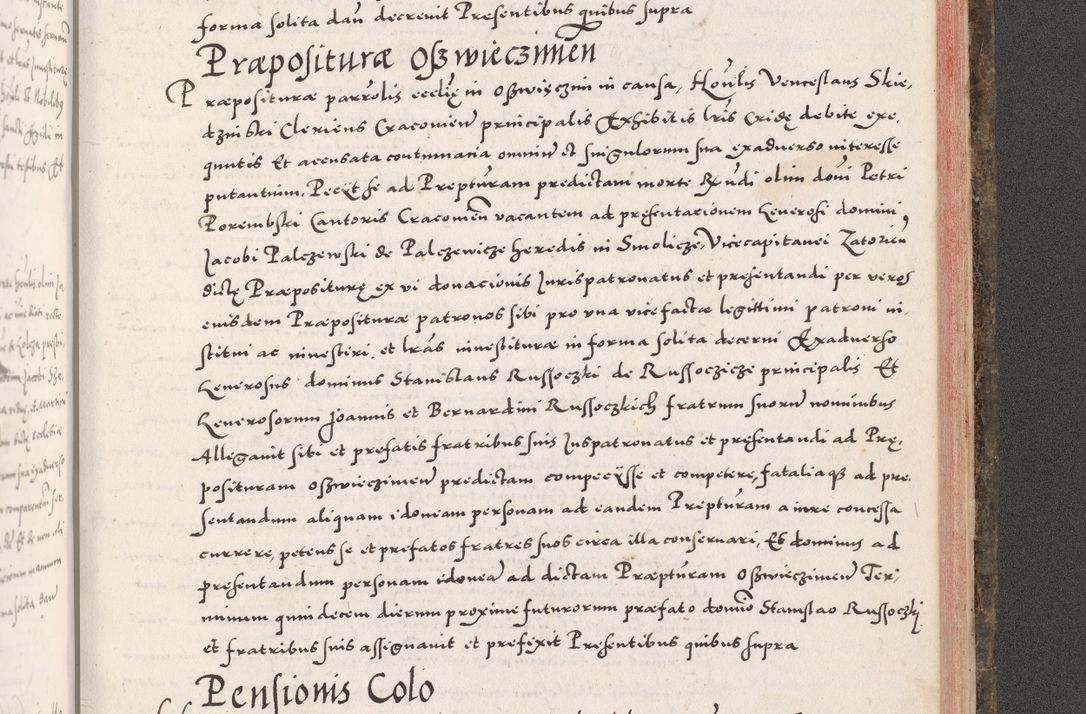 forma solita dañ decrevit Presentibus quibus supra
Præpositurae Oszwieczimeñ
Præpositurae parrolis ecclię in Oszwięczim in causa, Honlis Venceslaus Skie,
dzinski Clericus Cracovieñ principalis Exhibitis lris Cridę debite exe,
quutis Et accusata contumacia omniũ et singulorum sua exadverso interesse
putantium, Peciÿt se ad Prepturam predictam morte Rñdi olim doñi Petri
Porembski Cantoris Cracovieñ vacantem ad presentacionem Generosi domini
Jacobi Palczewski de Palczewicze heredis in Smolicze, Vicecapitanei Zatorieñ
dictę Præpositurę ex vi donacionis Jurispatronatus et presentandi per veros
eiusdem Præpositurae patronos sibi pro una vice factae legittimi patroni in,
stitui ac investiri, et lras investiturae in forma solita decerni Exadverso
Generosus dominus Stanislaus Russoczki de Russoczicze principalis Et
Generosorum Joannis et Bernardini Russoczkich fratrum suorũ nominibus
Allegavit sibi et prefatis fratribus suis Juspatronatus et presentandi ad Prę,
posituram Oszwieczimeñ predictam compecÿsse et competere, fataliaqꝫ ad pre
sentandum aliquam idoneam personam ad eandem Prepturam a iure concessa
currere, petens se et prefatos fratres suos circa illa conservari, Et dominus ad
presentandum personam idoneã ad dictam Præpturam Oszwieczimeñ Ter,
minum quindecem dierum proxime futurorum præfato domĩo Stanislao Russoczki
et fratribus suis assignavit et prefixit Presentibus quibus supra
Pensionis Colo